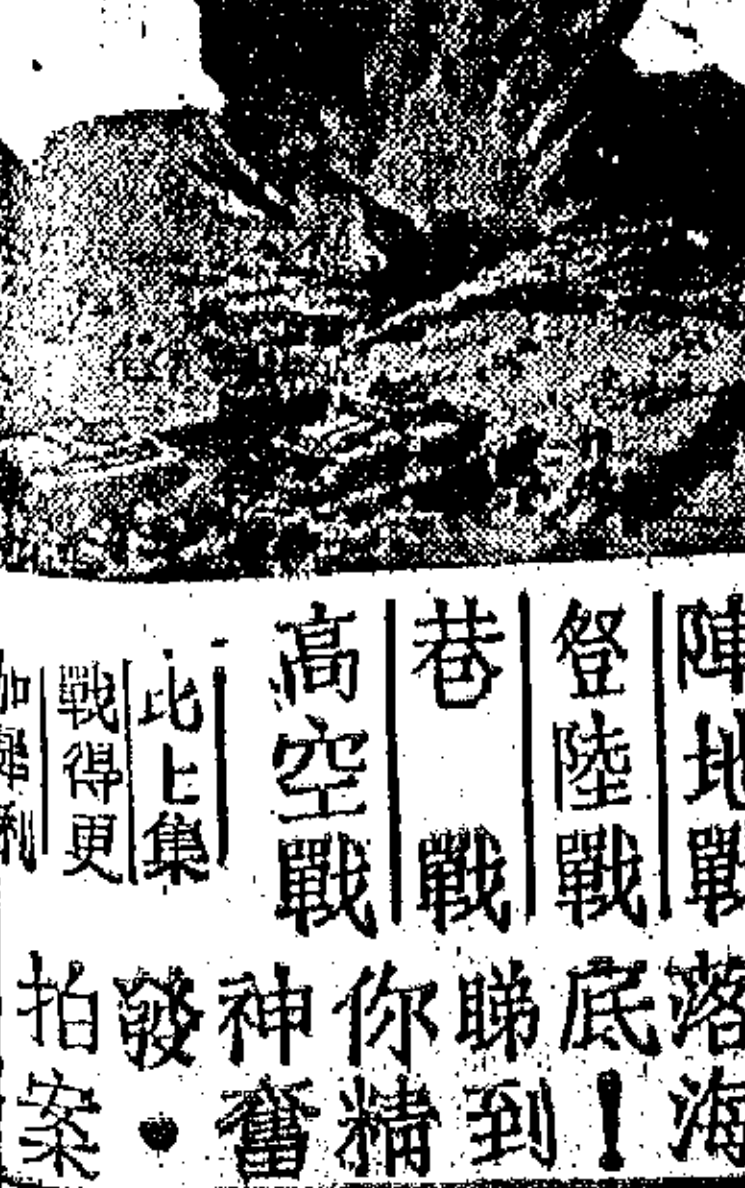 陣地戰
登陸戰
巷戰
高空戰
比上集
戰得更
加犀利
落海
底!
睇到
你精
神奮
發・
拍案